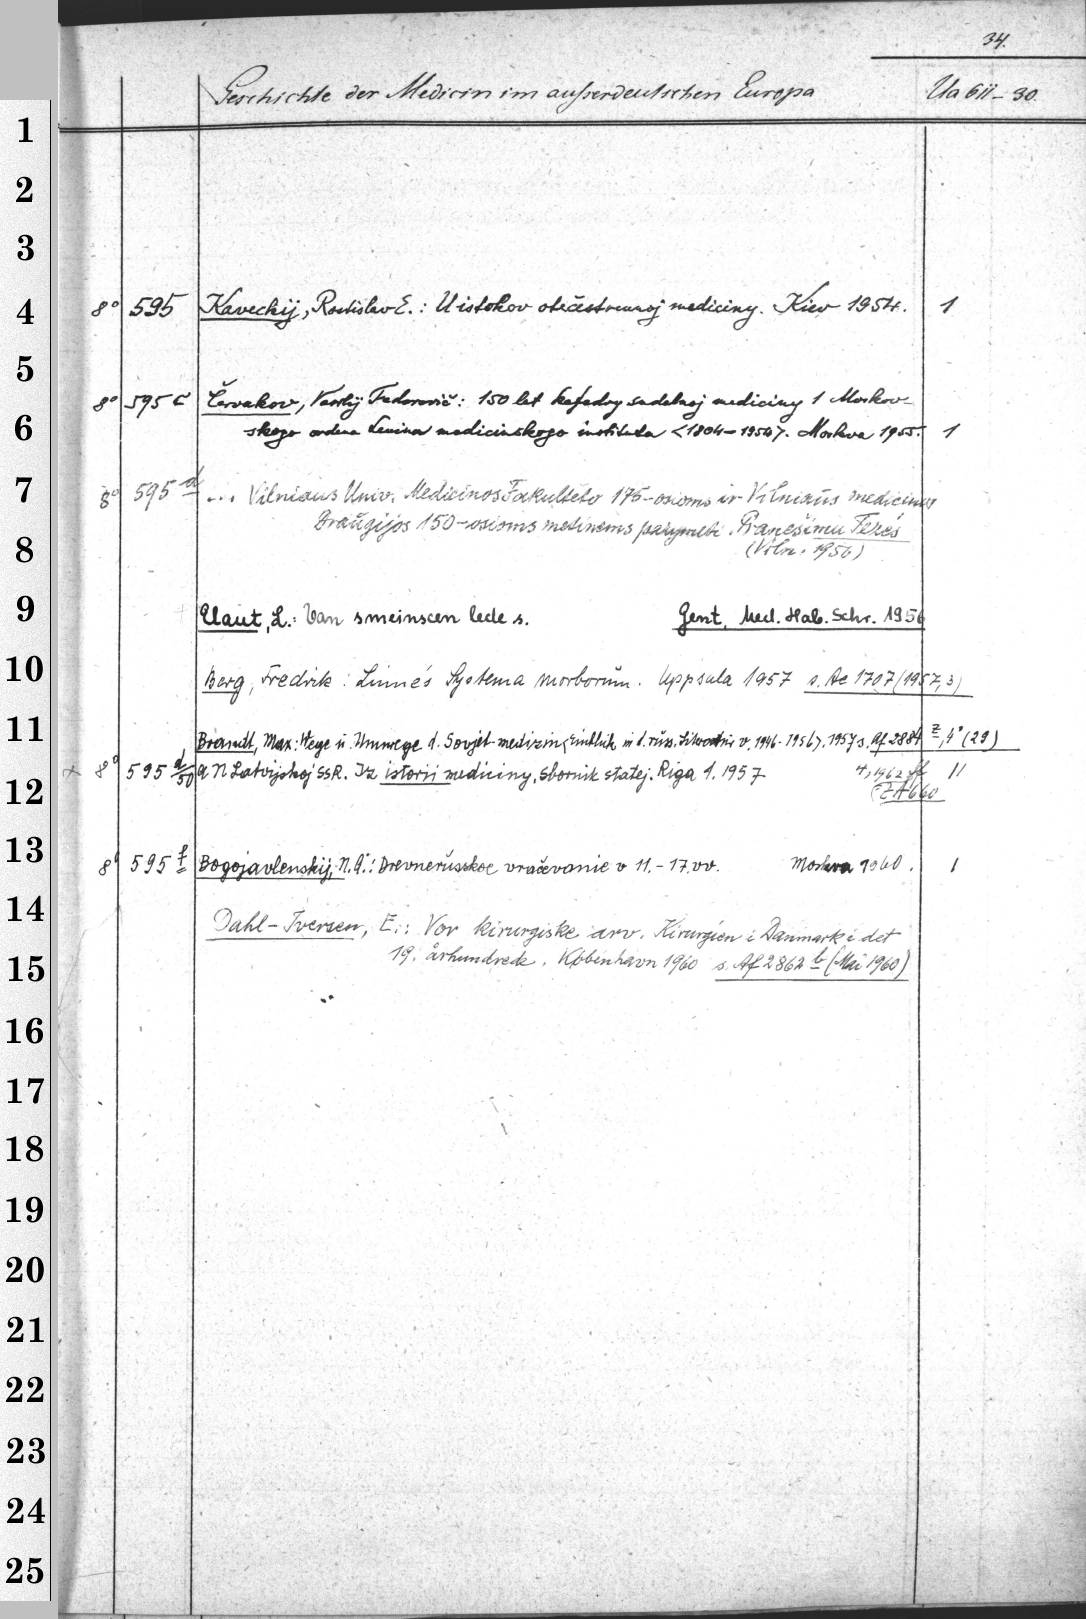 34.
Geschichte der Medicin im außerdeutschen Europa Ua 611-30
1
2
3
4 8° 595 Kaveckij, Rostislav E.: U istokov otečestvennoj mediciny. Kiev 1954. 1
5
8° 595 c Červakov, Vasilij Fedorovič: 150 let kafedry sudebnoj mediciny 1 Moskov-
6 skogo ordena Lenina medicinskogo instituta <1804-1954>. Moskva 1955. 1
7 8° 595 d ... Vilniaus Univ. Medicinos Fakulteto 175-osioms ir Vilniaus medicinos
Draugijos 150-osioms metinėms paminėti. Pranešimu Tezės
8 (Viln. 1956)
9 Elaut, L.: Van smeinscen lede s. Gent, Med. Hab. Schr. 1956
10 Berg, Fredrik: Linnés Systema morborum. Uppsala 1957 s. Ae 1707 (1957, 3)
11 Brandt, Max: Wege u. Umwege d. Sovjet-medizin <Einblick in d. russ. Literatur v. 1946-1956>. 1957 s. Af 2884 z, 4° (29)
x 8° 595 d/50 AN Latvijskoj SSR. Iz istorii mediciny, Sbornik statej. Riga 1. 1957 4, 1962 ff 11
12 (ZA 660
13 8° 595 f Bogojavlenskij, N. A.: Drevnerusskoe vračevanie v 11.-17. vv. Moskva 1960. 1
14 Dahl-Iversen, E.: Vor kirurgiske arv. Kirurgien i Danmark i det
15 19. århundrede. København 1960 s. Af 2862 b (Mai 1960)
16
17
18
19
20
21
22
23
24
25